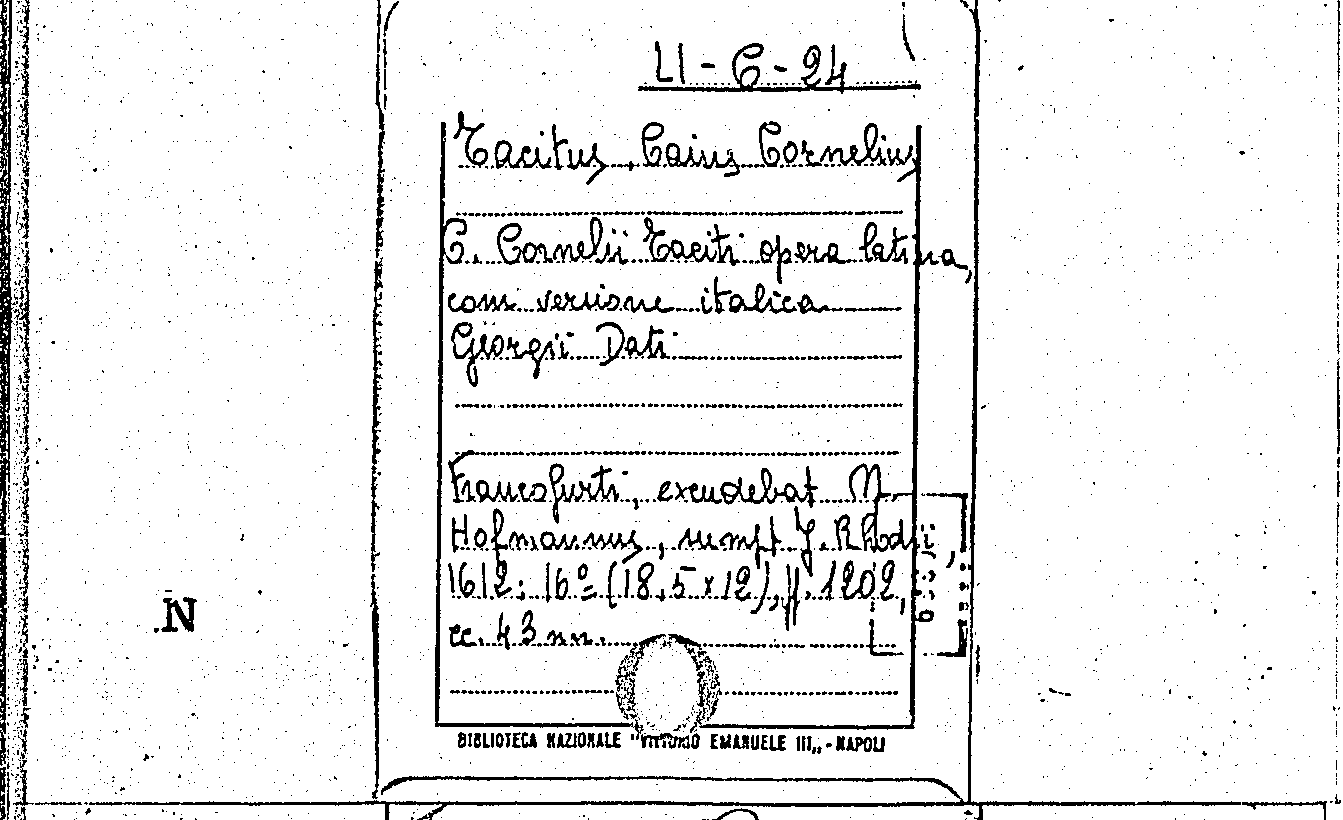 LI - C - 24
Tacitus, Caius Cornelius
C. Cornelii Taciti opera latina,
cum versione italica
Georgii Dati
Francofurti, excudebat N.
Hofmannus, sumpt J. Rhodii,
1612: 16º (18,5 x 12), pp. 1202,
cc. 43 nn.
N.
BIBLIOTECA NAZIONALE "VITTORIO EMANUELE III„ - NAPOLI